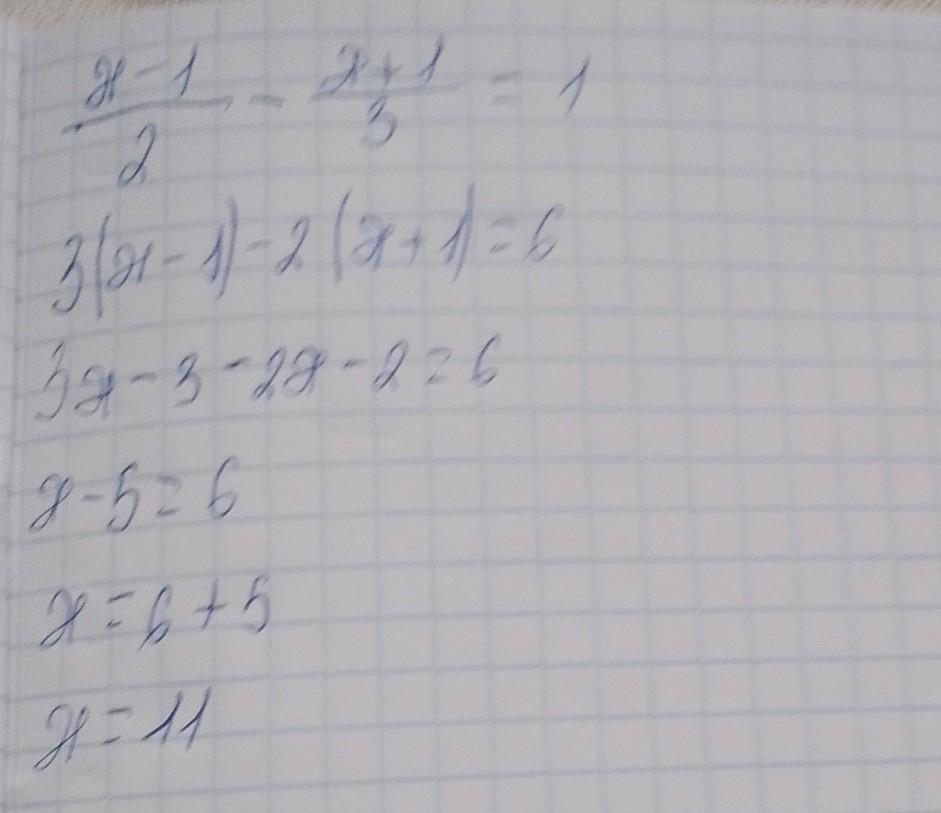 (x-1)/2 - (x+1)/3 = 1
3(x-1)-2(x+1)=6
3x-3-2x-2=6
x-5=6
x=6+5
x=11